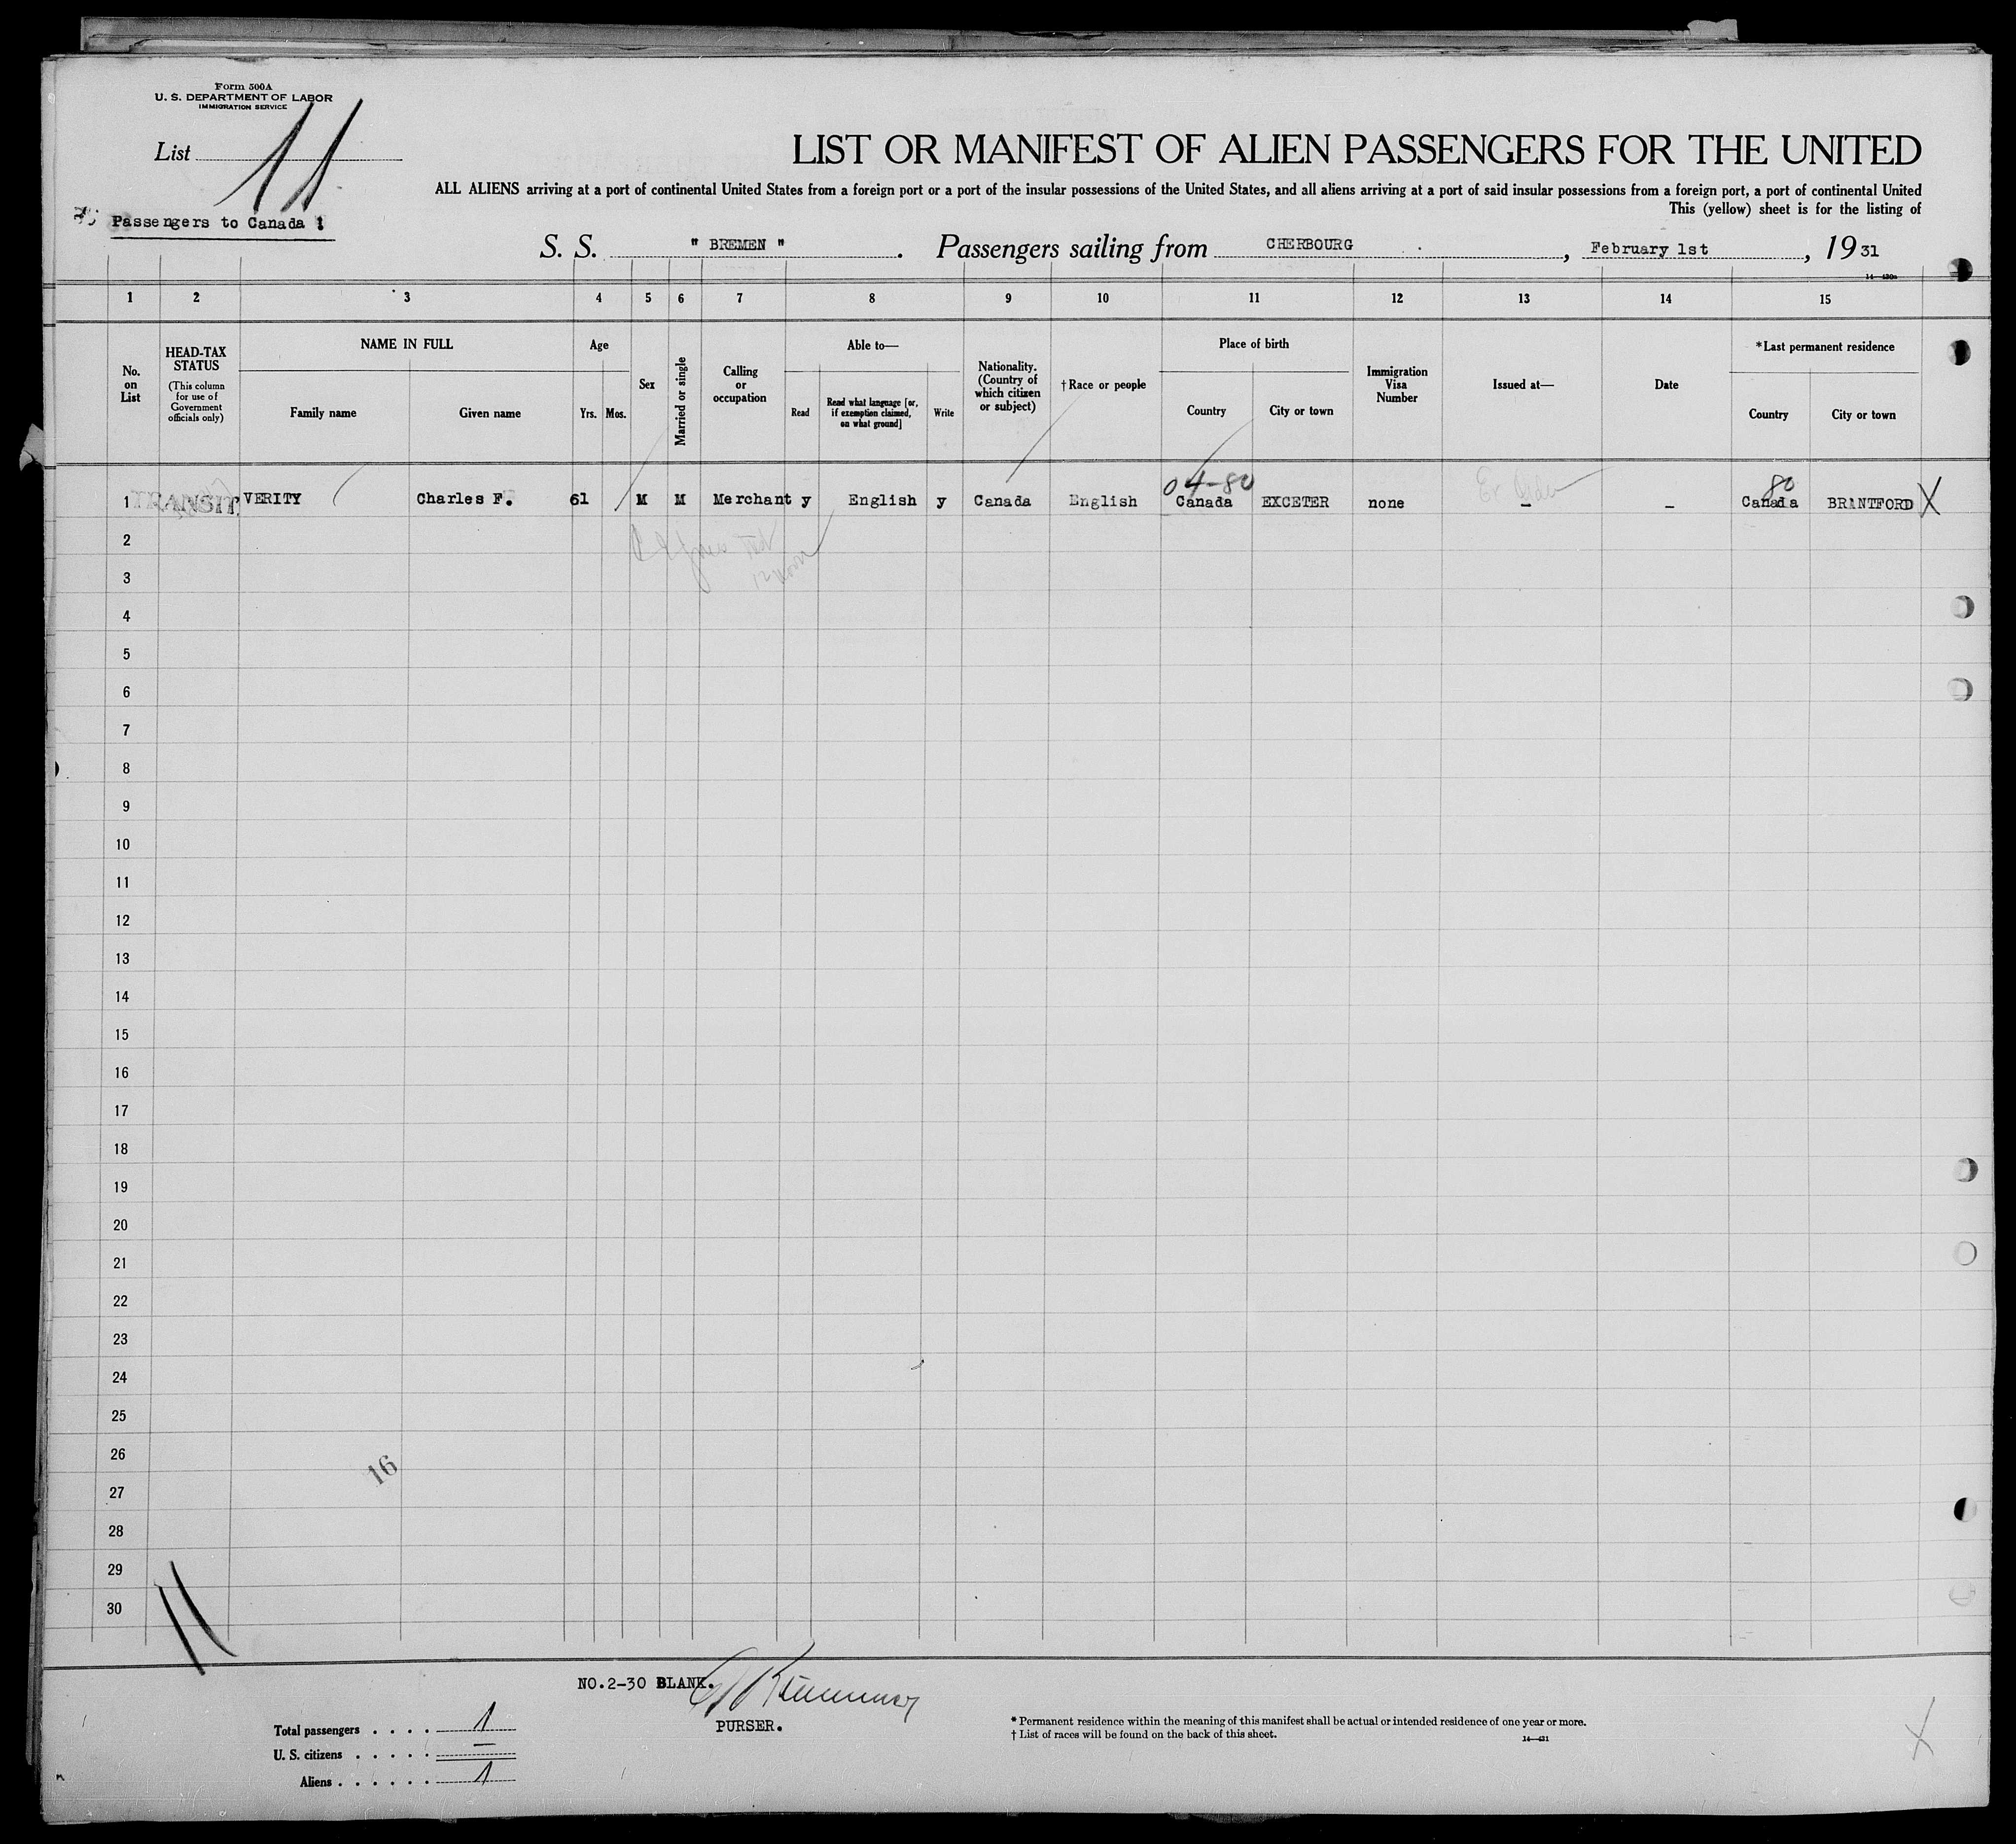 Form 500A
U. S. DEPARTMENT OF LABOR
IMMIGRATION SERVICE
List 11
Passengers to Canada !
LIST OR MANIFEST OF ALIEN PASSENGERS FOR THE UNITED
ALL ALIENS arriving at a port of continental United States from a foreign port or a port of the insular possessions of the United States, and all aliens arriving at a port of said insular possessions from a foreign port, a port of continental United
This (yellow) sheet is for the listing of
S. S. " BREMEN ". Passengers sailing from CHERBOURG, February 1st, 1931
1 2 3 4 5 6 7 8 9 10 11 12 13 14 15
No. on List
HEAD-TAX STATUS
(This column for use of Government officials only)
NAME IN FULL
Family name Given name
Age
Yrs. Mos.
Sex
Married or single
Calling or occupation
Able to—
Read
Read what language [or, if exemption claimed, on what ground]
Write
Nationality. (Country of which citizen or subject)
†Race or people
Place of birth
Country City or town
Immigration Visa Number
Issued at—
Date
*Last permanent residence
Country City or town
04-80 80
1 TRANSIT VERITY Charles F. 61 M M Merchant y English y Canada English Canada EXCETER none – – Canada BRANTFORD X
2
3
4
5
6
7
8
9
10
11
12
13
14
15
16
17
18
19
20
21
22
23
24
25
26
16
27
28
29
30
11
NO.2-30 BLANK.
PURSER.
Total passengers . . . . 1
U. S. citizens . . . . . –
Aliens . . . . . . 1
* Permanent residence within the meaning of this manifest shall be actual or intended residence of one year or more.
† List of races will be found on the back of this sheet.
14—431
X